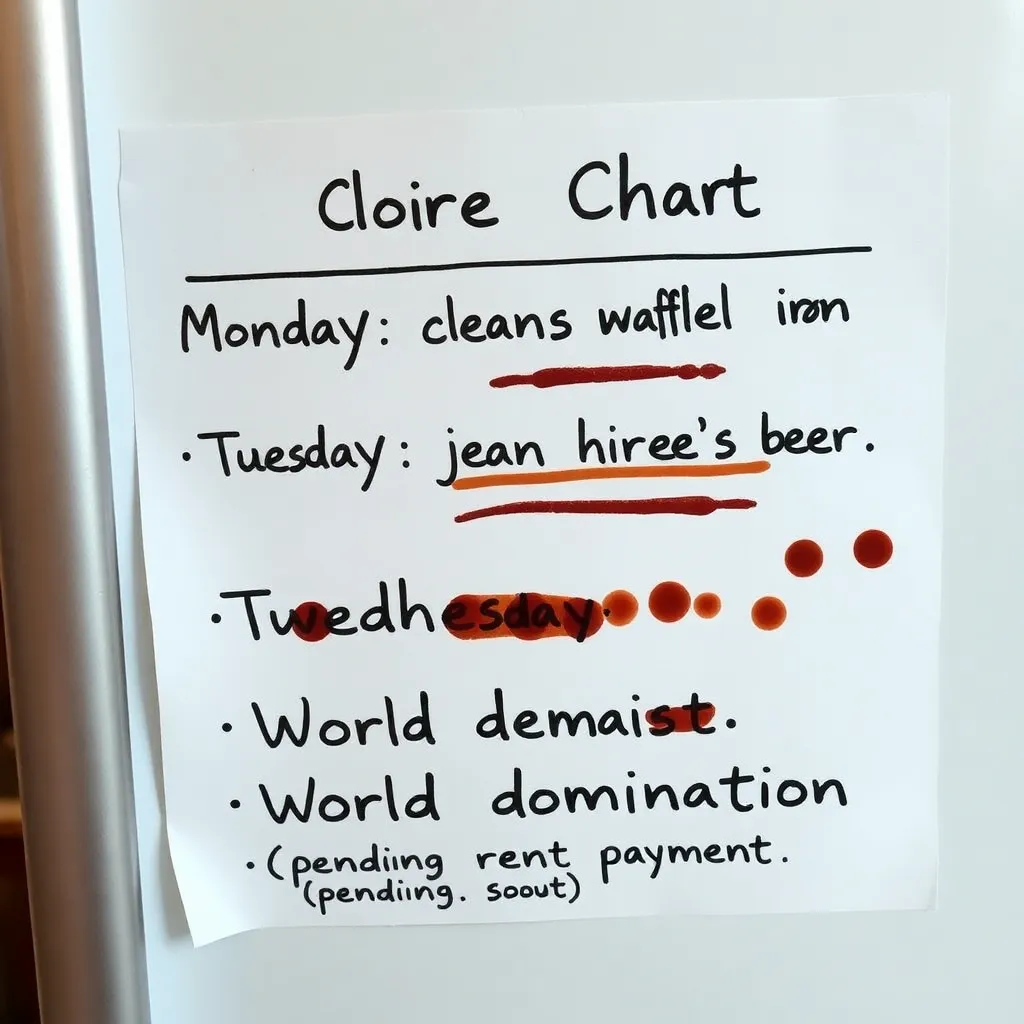 Cloire Chart
Monday: cleans wafflel iron
· Tuesday: jean hiree's beer.
· Twedhesday.
· World demaist.
· World domination
· (pendiing rent payment.
(pendiing. soout)